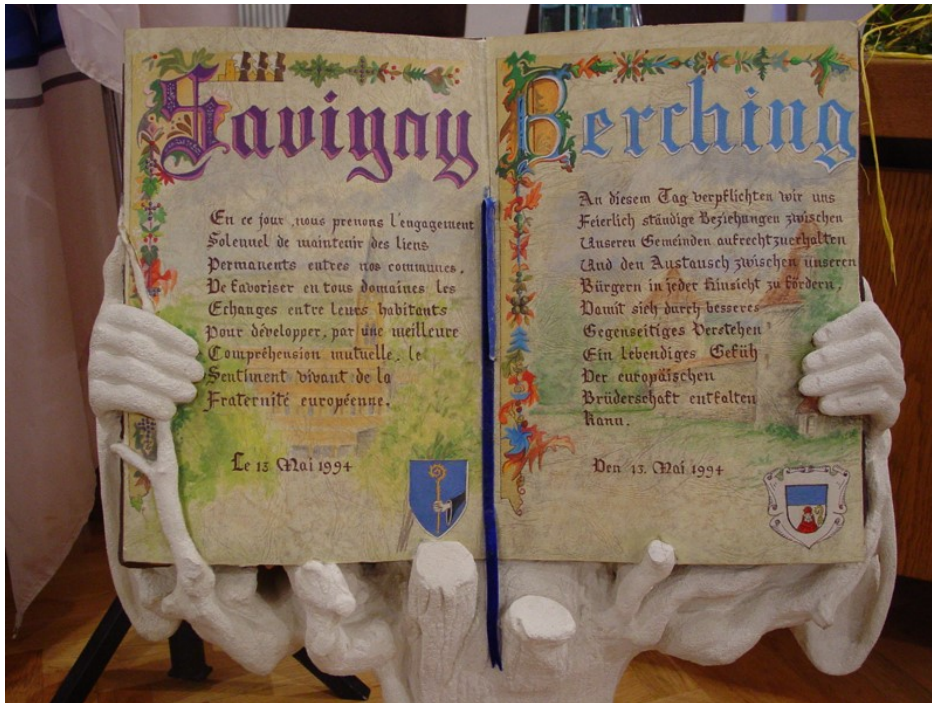 Savigny
En ce jour, nous prenons l'engagement
Solennel de maintenir des liens
Permanents entres nos communes.
De favoriser en tous domaines les
Echanges entre leurs habitants
Pour développer, par une meilleure
Compréhension mutuelle, le
Sentiment vivant de la
Fraternité européenne.
Le 13 Mai 1994
Berching
An diesem Tag verpflichten wir uns
Feierlich ständige Beziehungen zwischen
Unseren Gemeinden aufrechtzuerhalten
Und den Austausch zwischen unseren
Bürgern in jeder Hinsicht zu fördern,
Damit sich durch besseres
Gegenseitiges Verstehen
Ein lebendiges Gefüh
Der europäischen
Brüderschaft entfalten
Kann.
Den 13. Mai 1994